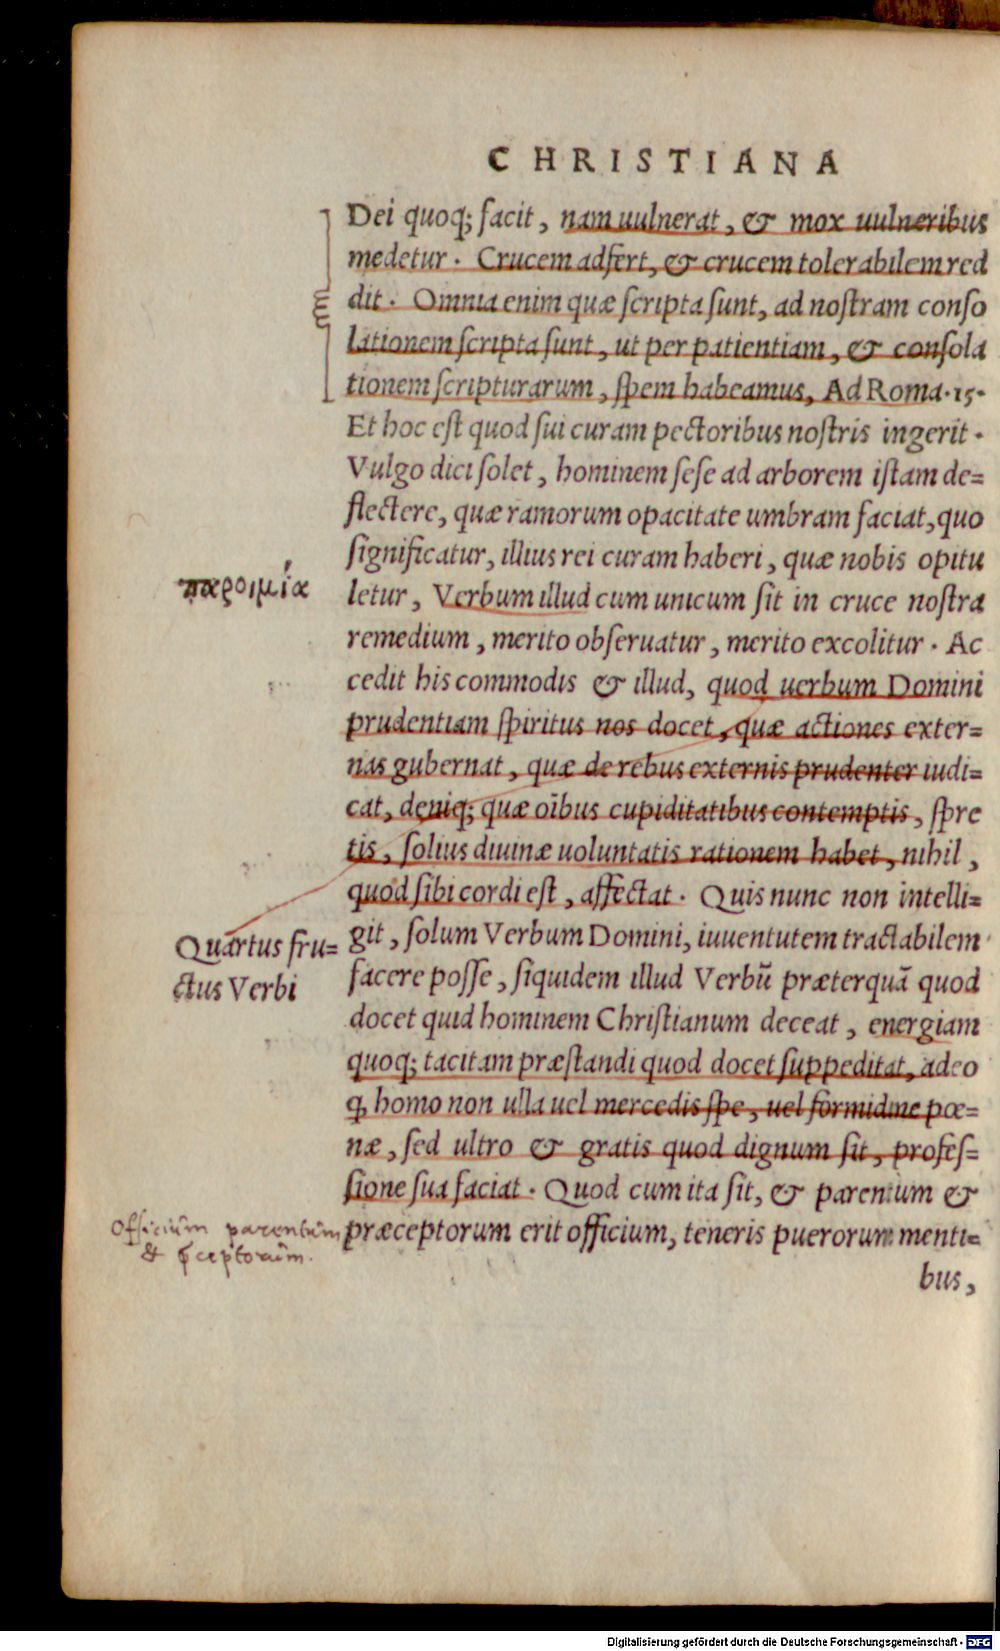 CHRISTIANA
Dei quoq; facit, nam uulnerat, & mox uulneribus
medetur. Crucem adfert, & crucem tolerabilem red
dit. Omnia enim quæ scripta sunt, ad nostram conso
lationem scripta sunt, ut per patientiam, & consola
tionem scripturarum, spem habeamus, Ad Roma.15.
Et hoc est quod sui curam pectoribus nostris ingerit.
Vulgo dici solet, hominem sese ad arborem istam de=
flectere, quæ ramorum opacitate umbram faciat, quo
significatur, illius rei curam haberi, quæ nobis opitu
παροιμία
letur, Verbum illud cum unicum sit in cruce nostra
remedium, merito obseruatur, merito excolitur. Ac
cedit his commodis & illud, quod uerbum Domini
prudentiam spiritus nos docet, quæ actiones exter=
nas gubernat, quæ de rebus externis prudenter iudi=
cat, deniq; quæ oībus cupiditatibus contemptis, spre
tis, solius diuinæ uoluntatis rationem habet, nihil,
quod sibi cordi est, affectat. Quis nunc non intelli=
Quartus fru=
ctus Verbi
git, solum Verbum Domini, iuuentutem tractabilem
facere posse, siquidem illud Verbū præterquā quod
docet quid hominem Christianum deceat, energiam
quoq; tacitam præstandi quod docet suppeditat, adeo
ꝗ homo non ulla uel mercedis spe, uel formidine pœ=
næ, sed ultro & gratis quod dignum sit, profes=
sione sua faciat. Quod cum ita sit, & parentum &
Officium parentum
& ꝓceptorum.
præceptorum erit officium, teneris puerorum menti=
bus,
Digitalisierung gefördert durch die Deutsche Forschungsgemeinschaft - DFG